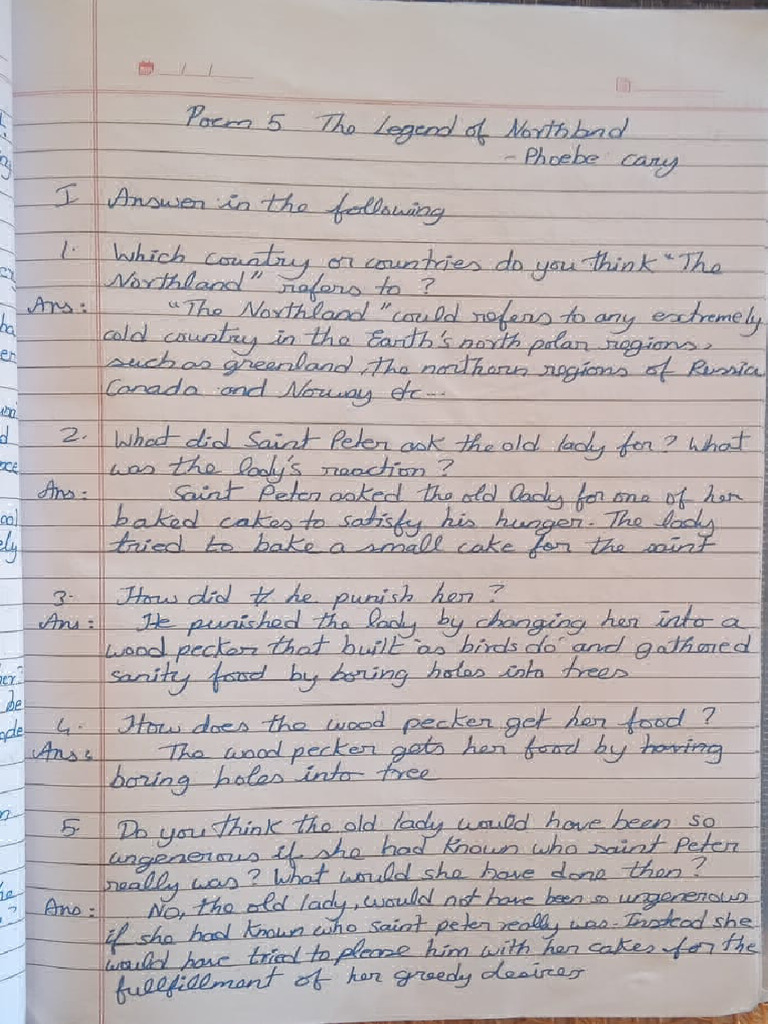 Poem 5 The Legend of Northland
- Phoebe cary
I Answer in the following
1. Which country or countries do you think "The
Northland" refers to ?
Ans : "The Northland" could refers to any extremely
cold country in the Earth's north polar regions,
such as greenland, the northern regions of Russia
Canada and Norway etc...
2. What did Saint Peter ask the old lady for? What
was the lady's reaction ?
Ans : Saint Peter asked the old lady for one of her
baked cakes to satisfy his hunger. The lady
tried to bake a small cake for the saint
3. How did he punish her ?
Ans : He punished the lady by changing her into a
wood pecker that built "as birds do" and gathered
sanity food by boring holes into trees
4. How does the wood pecker get her food ?
Ans : The wood pecker gets her food by having
boring holes into tree
5. Do you think the old lady would have been so
ungenerous if she had known who saint Peter
really was? What would she have done then?
Ans : No, the old lady, would not have been so ungenerous
if she had known who saint peter really was. Instead she
would have tried to please him with her cakes for the
fullfillment of her greedy desires